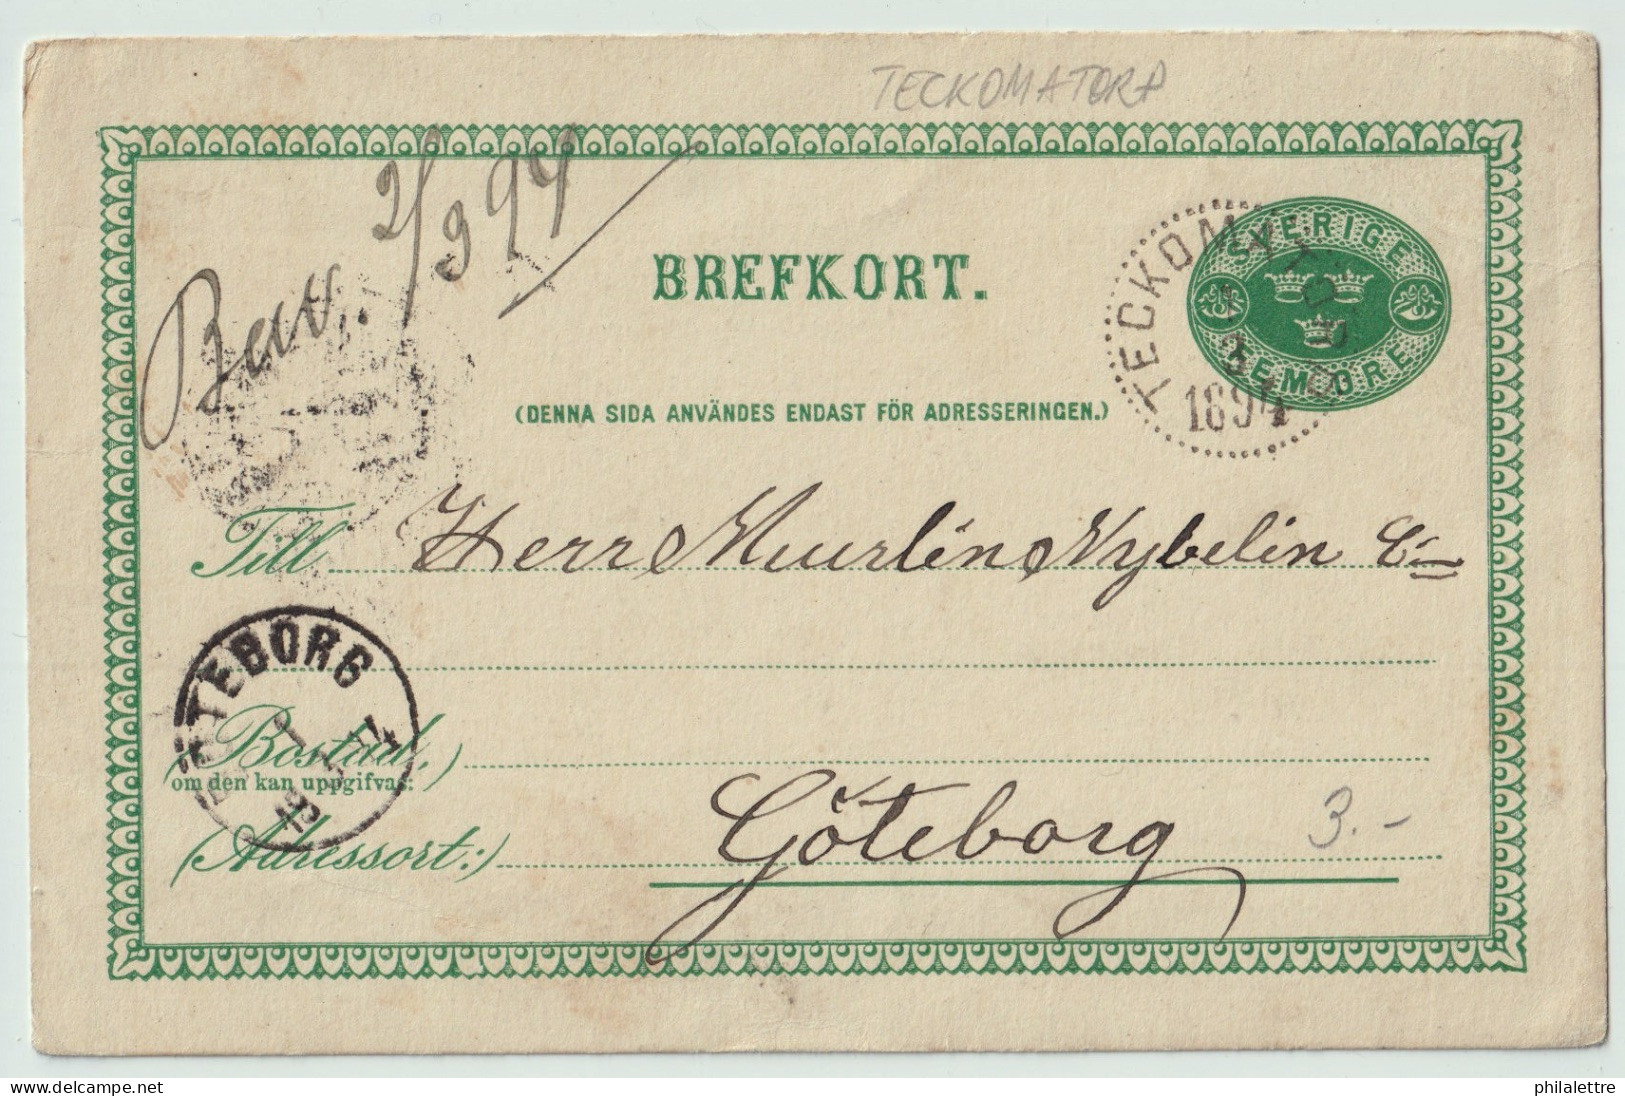 TECKOMATORP
Besv. 2/3 94
BREFKORT.
SVERIGE
FEM ÖRE
TECKOMATORP
1
3
1894
(DENNA SIDA ANVÄNDES ENDAST FÖR ADRESSERINGEN.)
Till Herr Muurlin Nybelin Co
GÖTEBORG
(Bostad,)
om den kan uppgifvas:
(Adressort:) Göteborg
3.-
delcampe.net
philalettre